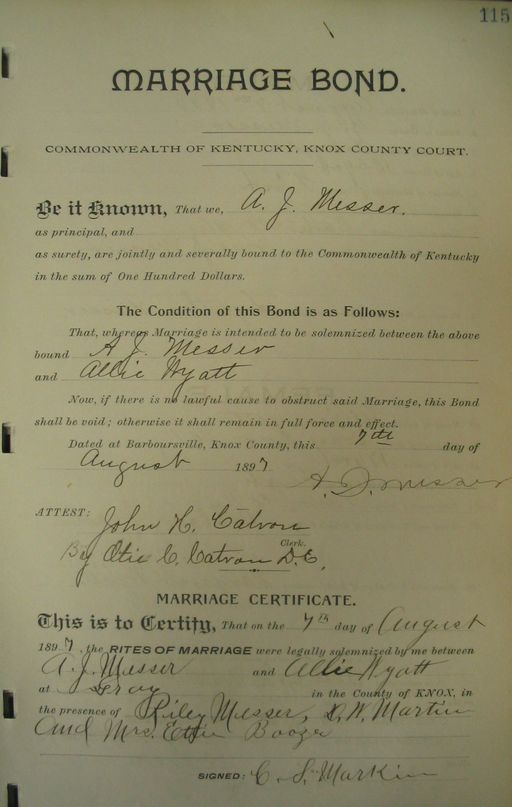 115
MARRIAGE BOND.
COMMONWEALTH OF KENTUCKY, KNOX COUNTY COURT.
Be it Known, That we, A. J. Messer.
as principal, and
as surety, are jointly and severally bound to the Commonwealth of Kentucky
in the sum of One Hundred Dollars.
The Condition of this Bond is as Follows:
That, whereas Marriage is intended to be solemnized between the above
bound A J. Messer
and Allie Wyatt
Now, if there is no lawful cause to obstruct said Marriage, this Bond
shall be void; otherwise it shall remain in full force and effect.
Dated at Barboursville, Knox County, this 7th day of
August 1897
A. J. Messer
ATTEST: John H. Catron
Clerk.
By Otie C. Catron D.C.
MARRIAGE CERTIFICATE.
This is to Certify, That on the 7th day of August
1897, the RITES OF MARRIAGE were legally solemnized by me between
A. J. Messer and Allie Wyatt
at in the County of KNOX, in
the presence of Riley Messer, W. Martin
and Mrs.
SIGNED: C. S.